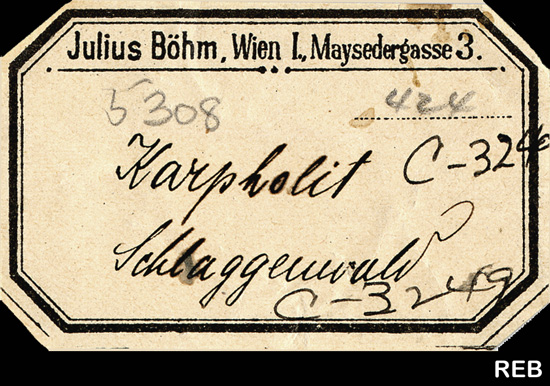 Julius Böhm, Wien I., Maysedergasse 3.
5308
424
Karpholit
C-324
Schlaggenwald
C-3249
REB